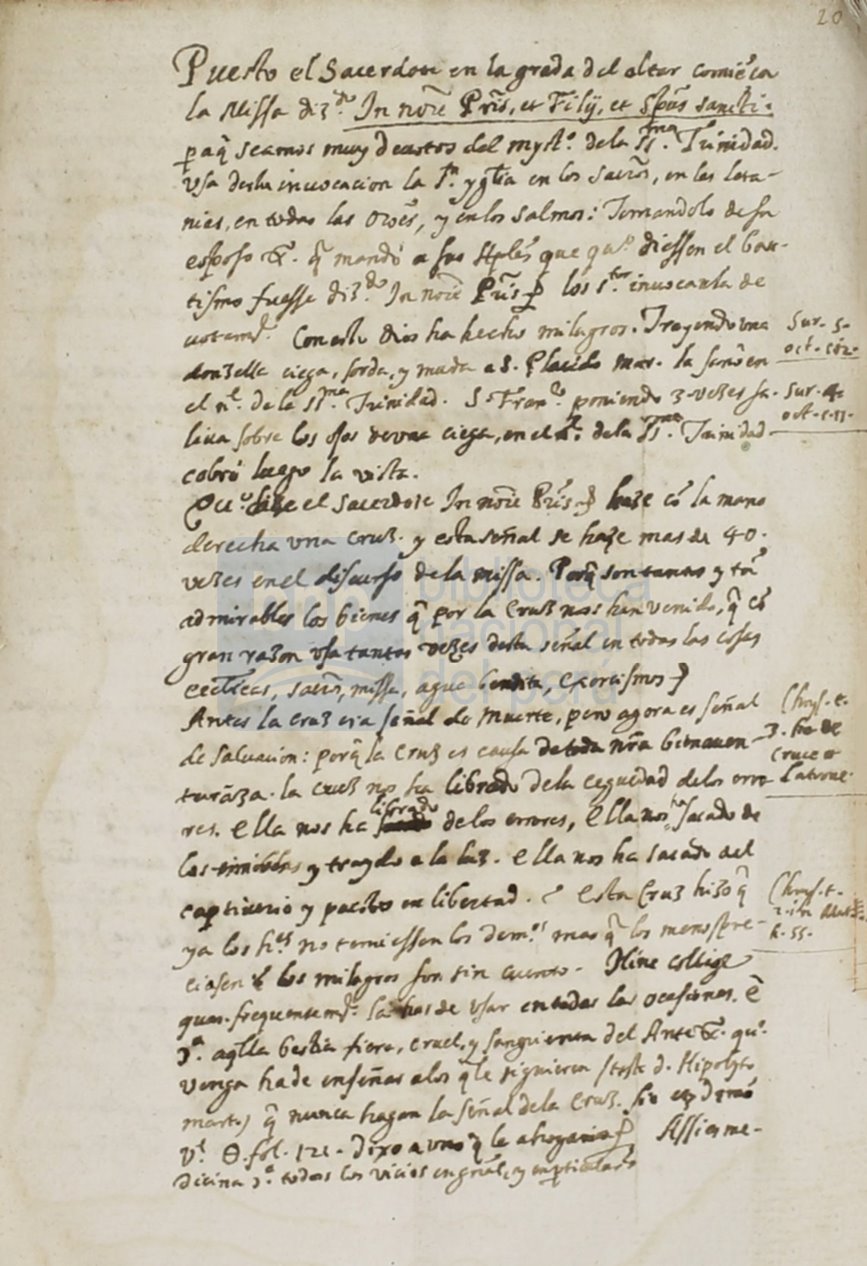 20
Puesto el Sacerdote en la grada del altar comiẽça
la Missa diz.do In nõie Pr̃is, et Filij, et Sp̃us sancti.
paq̃ seamos muy deuotos del myst.o de la SS.ma Trinidad.
Vsa desta inuocacion la S.ta ygl̃ia en los Sacr̃os, en las leta-
nias, en todas las or̃oes, y en los Salmos: Tomandolo de su
esposo X. q̃ mandò a sus Apl̃es que qu.o diessen el bau-
tismo fuesse diz.do In nõie Pr̃is los S.tos inuocanla de
uotam.te Con esto Dios ha hecho milagros. Trayendo vna
donzella ciega, sorda, y muda a S. Placido mar. la sanò en
el n.e de la SS.ma Trinidad. S. Fran.co poniendo 3 vezes sa-
liua sobre los ojos de vna ciega, en el n.e de la SS.ma Trinidad
cobró luego la vista.
Sur. 5.
oct.
Sur. 4.
oct.
dize el Sacerdote In nõie Pr̃is haze cõ la mano
derecha vna cruz. y esta señal se haze mas de 40.
vezes en el discurso de la missa. Porq̃ son tantos y tã
admirables los bienes q̃ por la Cruz nos han venido, q̃ cõ
gran razon vsa tantas vezes desta señal en todas las cosas
eccl̃icas, sacr̃os, missa, agua bendita, exorcismos
Antes la cruz era señal de muerte, pero agora es señal
de saluacion: porq̃ la Cruz es causa de toda nr̃a bienauen-
turãza. la cruz nos ha librado de la ceguedad de los erro
res. ella nos ha librado de los errores, ella nos ha sacado de
las tinieblas y traydo a la luz. ella nos ha sacado del
captiuerio y puesto en libertad. esta Cruz hizo q̃
Chrys. t.
3. ho de
Cruce et
Latrone.
ya los h.es no temiessen los dem.os mas q̃ los menospre-
ciasen los milagros son sin cuento. Hinc collige
quan frequentem.te la has de vsar en todas las ocasiones.
Chrys. t.
h. 55.
aq̃lla bestia fiera, cruel, y sanguienta del Ante X. qu.o
venga ha de enseñar a los q̃ le siguieren (teste d. Hipolyto
mart.) q̃ nunca hagan la señal de la Cruz.
fol. 121. Dixo a vno q̃ Assi es me-
dicina todos los vicios en gñal, y en particular